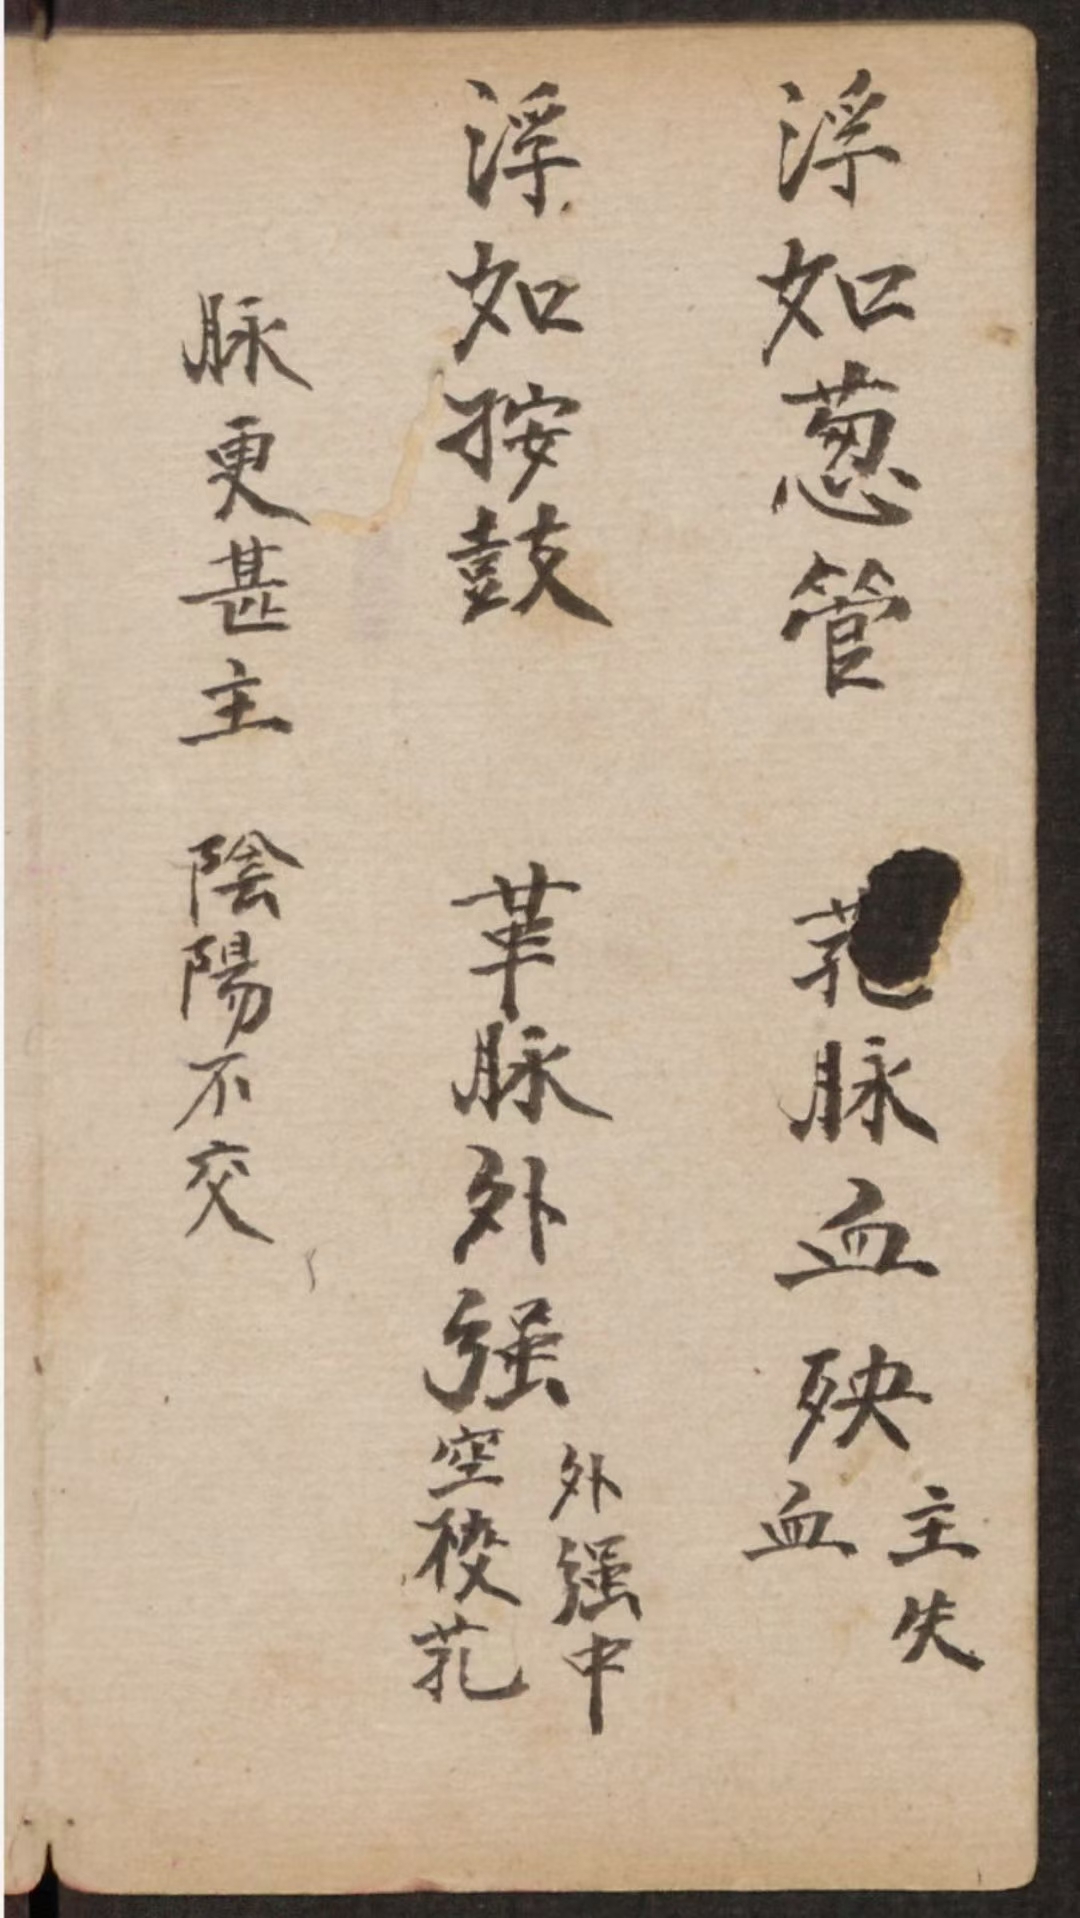 浮如葱管 芤脉血殃
主失
血
浮如按鼓 革脉外强
外强中
空校芤
脉更甚主 陰陽不交